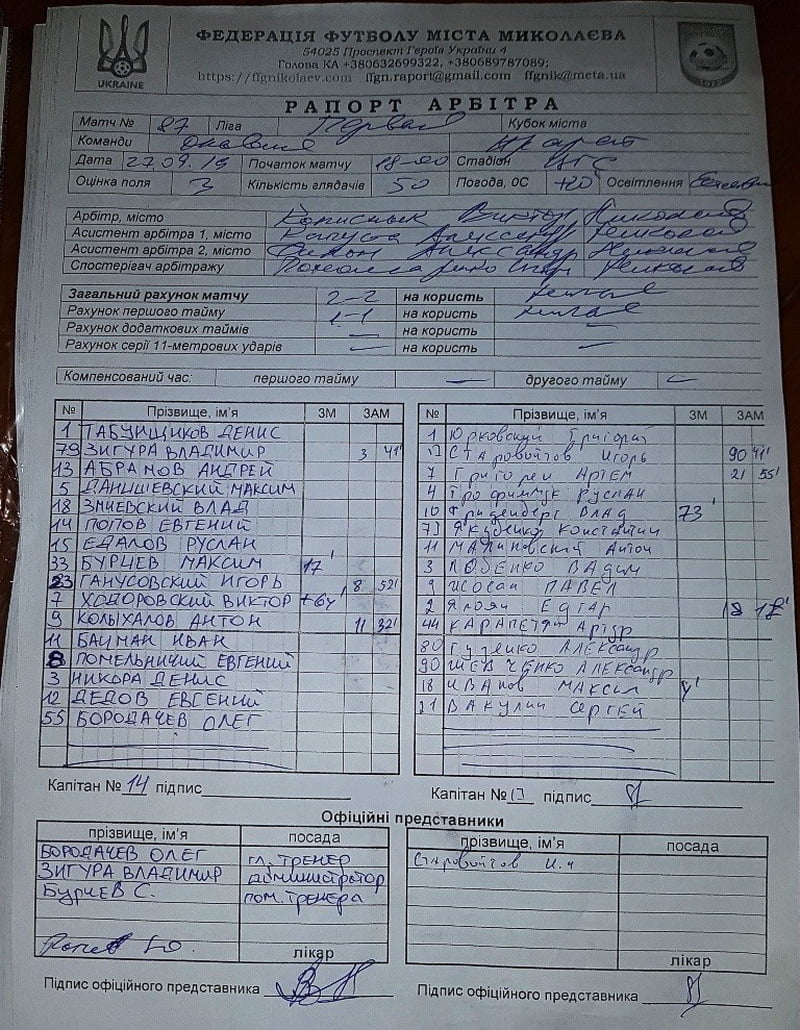 UKRAINE
ФЕДЕРАЦІЯ ФУТБОЛУ МІСТА МИКОЛАЄВА
54025 Проспект Героїв України 4
Голова КА +380632699322, +380689787089;
https://ffgnikolaev.com ffgn.raport@gmail.com ffgnik@meta.ua
РАПОРТ АРБІТРА
Матч № 87 Ліга Первая Кубок міста
Команди
Дата 27.09.19 Початок матчу 18-00 Стадіон ЦГС
Оцінка поля 3 Кількість глядачів 50 Погода, 0С +20 Освітлення
Арбітр, місто Виктор Николаев
Асистент арбітра 1, місто Капуста Александр Николаев
Асистент арбітра 2, місто Александр Николаев
Спостерігач арбітражу Николаев
Загальний рахунок матчу 2-2 на користь ничья
Рахунок першого тайму 1-1 на користь ничья
Рахунок додаткових таймів — на користь —
Рахунок серії 11-метрових ударів — на користь —
Компенсований час: першого тайму — другого тайму —
№ Прізвище, ім'я ЗМ ЗАМ
1 ТАБУНЩИКОВ ДЕНИС
79 ЗИГУРА ВЛАДИМИР 3 41'
13 АБРАМОВ АНДРЕЙ
5 ДАНИШЕВСКИЙ МАКСИМ
18 ЗМИЕВСКИЙ ВЛАД
14 ПОПОВ ЕВГЕНИЙ
15 ЕДАЛОВ РУСЛАН
33 БУРЧЕВ МАКСИМ 17'
23 ГАНУСОВСКИЙ ИГОРЬ 8 52'
7 ХОДОРОВСКИЙ ВИКТОР +64'
9 КОЛЫХАЛОВ АНТОН 11 32'
11 БАЦМАН ИВАН
8 ПОМЕЛЬНИЧИЙ ЕВГЕНИЙ
3 НИКОРА ДЕНИС
12 ДЕДОВ ЕВГЕНИЙ
55 БОРОДАЧЕВ ОЛЕГ
Капітан № 14 підпис
№ Прізвище, ім'я ЗМ ЗАМ
1 Юрковский Григорий
13 Старовойтов Игорь 90 41'
7 Григорец Артем 21 55'
4 Трофимчук Руслан
10 Фриденберг Влад 73'
73 Якуденко Константин
11 Малиновский Антон
3 Лобенко Вадим
9 ПАВЕЛ
2 Ялоян Едгар 18 18'
44 КАРАПЕТЯН Артур
80 Гуденко АЛЕКСАНДР
90 ШЕВЧЕНКО АЛЕКСАНДР
18 ИВАНОВ МАКСИМ 4'
21 ВАКУЛИН СЕРГЕЙ
Капітан № 13 підпис
Офіційні представники
прізвище, ім'я посада
БОРОДАЧЕВ ОЛЕГ гл. ТРЕНЕР
ЗИГУРА ВЛАДИМИР АДМИНИСТРАТОР
БУРЧЕВ С. пом. ТРЕНЕРА
лікар
Підпис офіційного представника
прізвище, ім'я посада
Старовойтов И.Н
лікар
Підпис офіційного представника